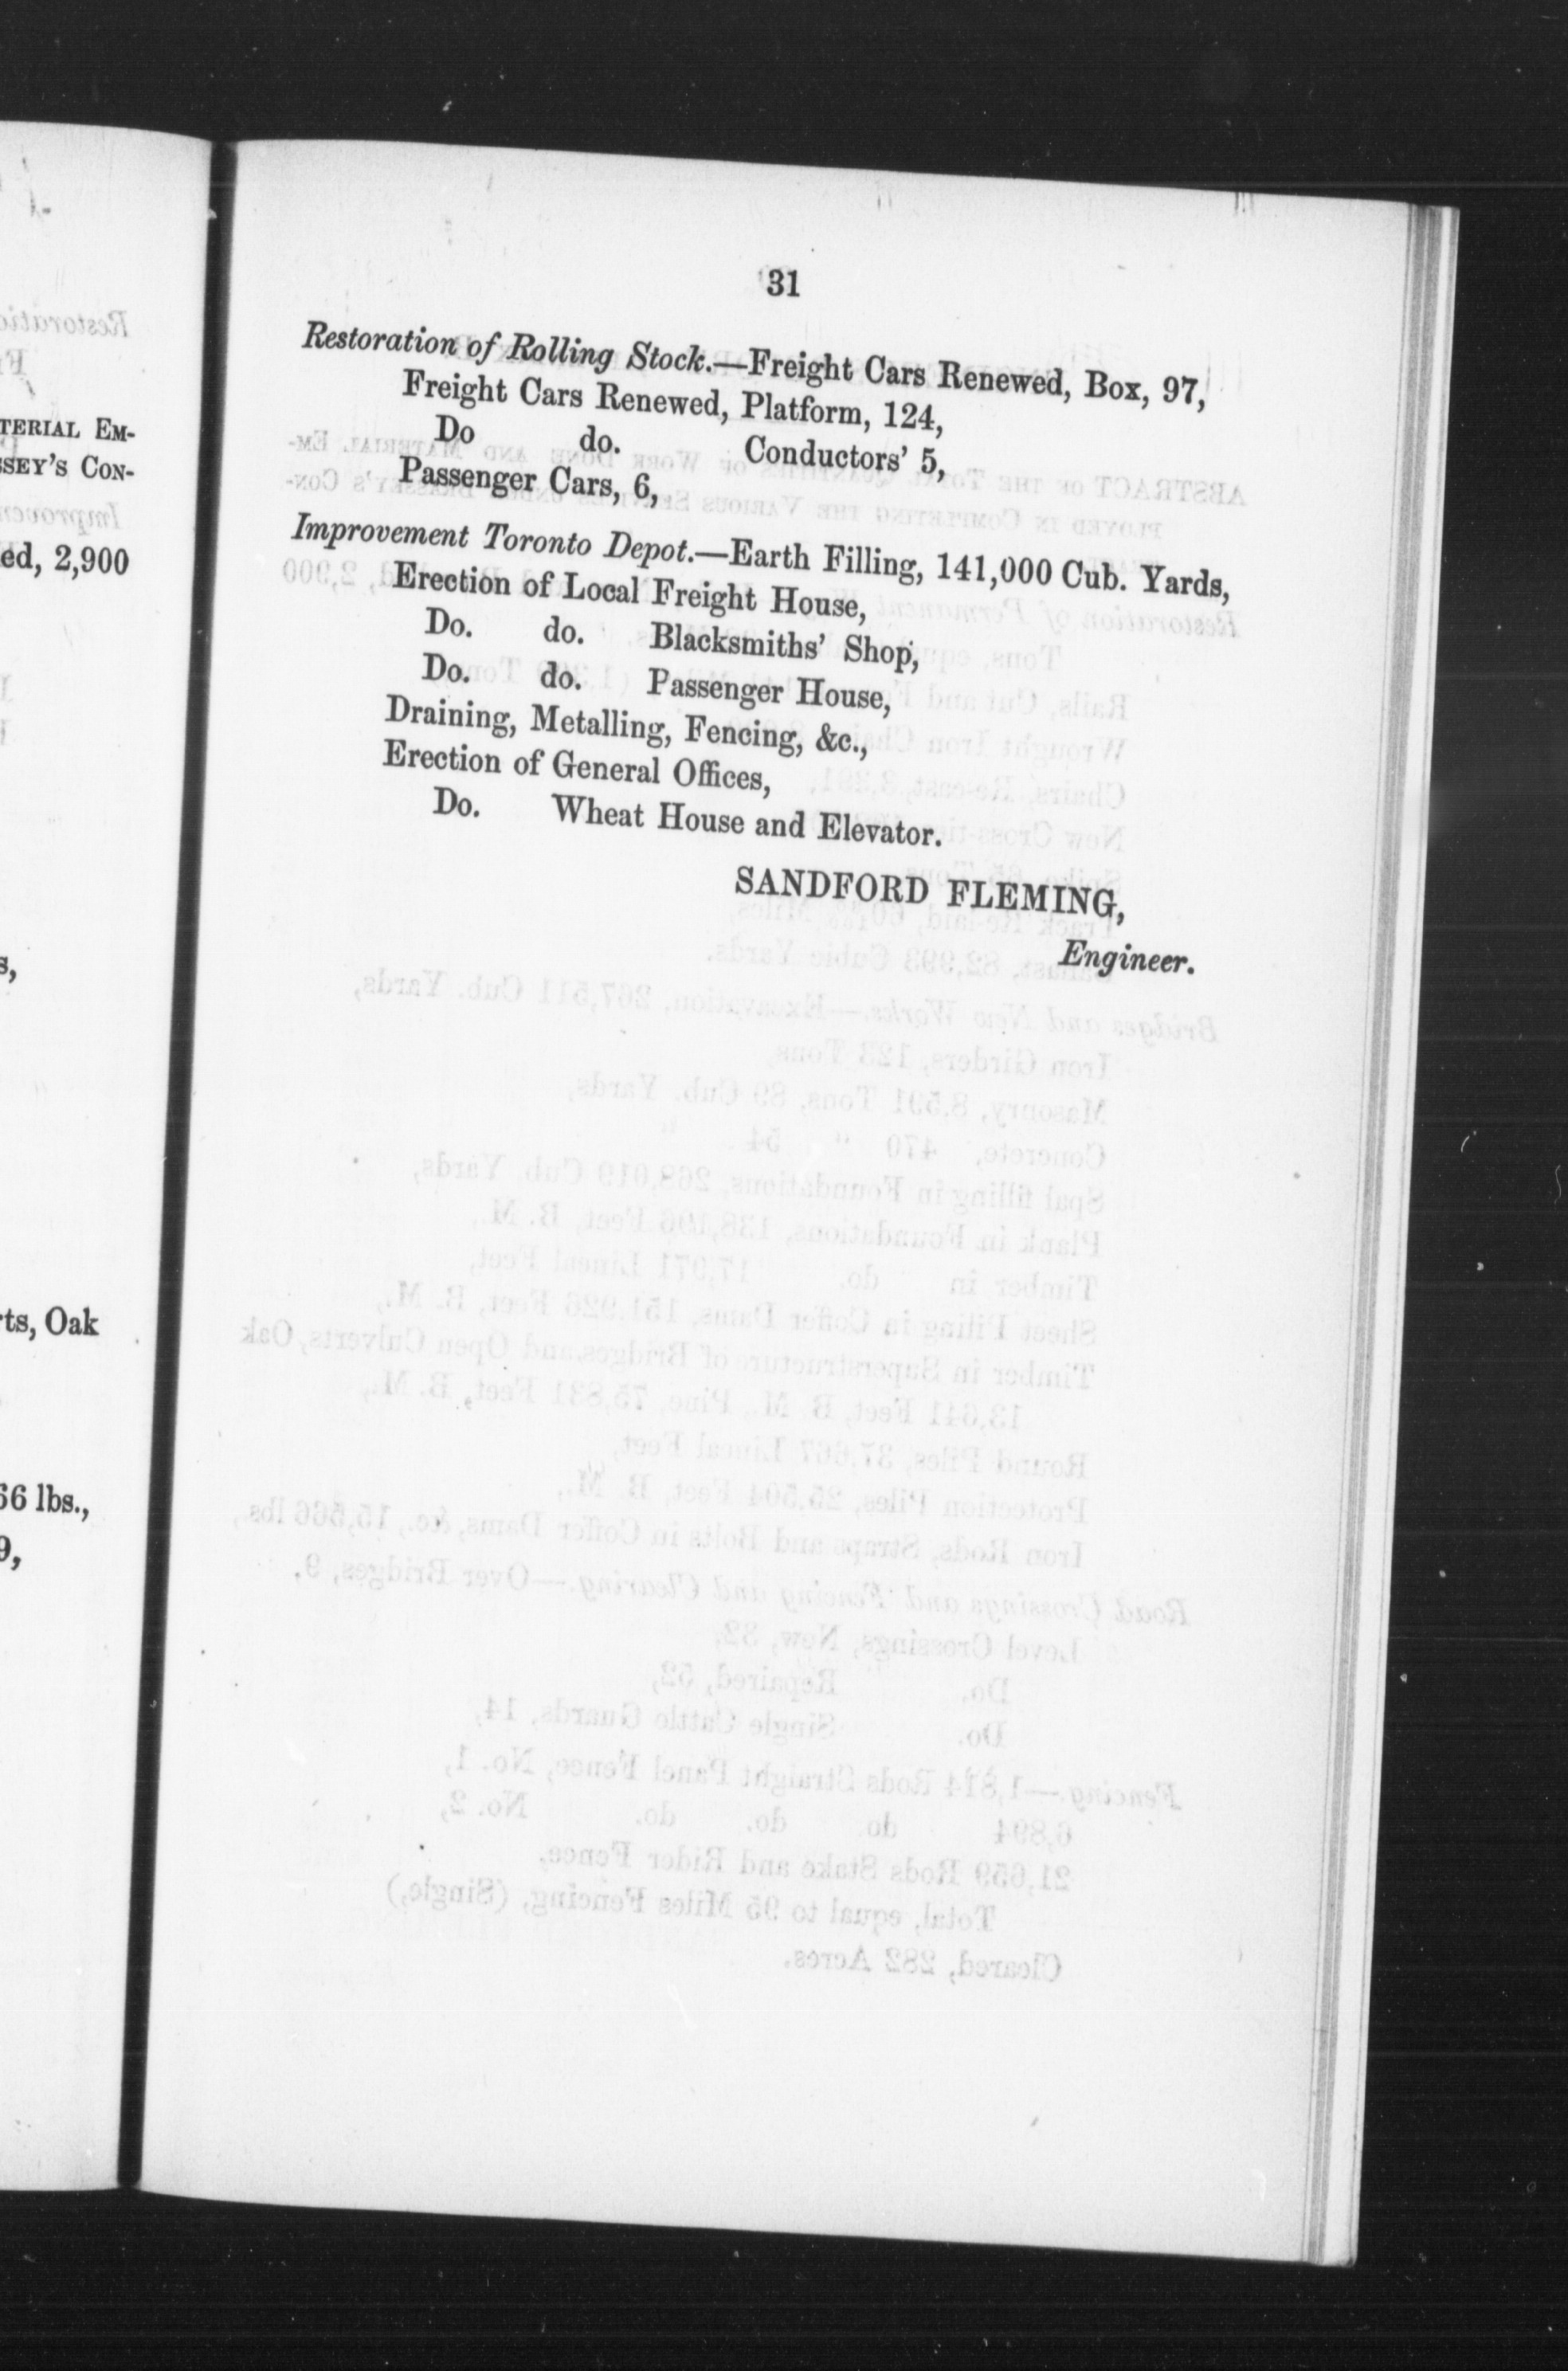 TERIAL EM-
SSEY'S CON-
ed, 2,900
s,
ts, Oak
66 lbs.,
9,
31
Restoration of Rolling Stock.—Freight Cars Renewed, Box, 97,
Freight Cars Renewed, Platform, 124,
Do do. Conductors' 5,
Passenger Cars, 6,
Improvement Toronto Depot.—Earth Filling, 141,000 Cub. Yards,
Erection of Local Freight House,
Do. do. Blacksmiths' Shop,
Do. do. Passenger House,
Draining, Metalling, Fencing, &c.,
Erection of General Offices,
Do. Wheat House and Elevator.
SANDFORD FLEMING,
Engineer.